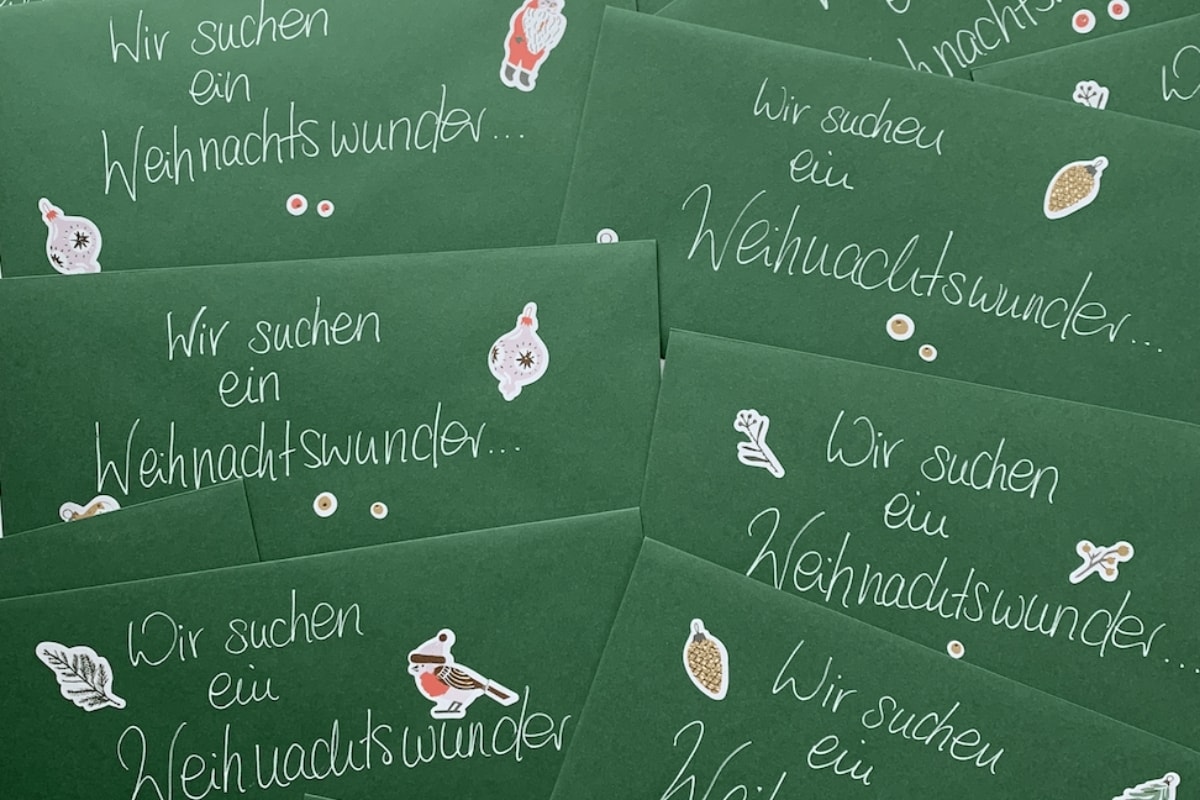 Wir suchen
ein
Weihnachtswunder...
Wir suchen
ein
Weihnachtswunder...
Wir suchen
ein
Weihnachtswunder...
Wir suchen
ein
Weihnachtswunder...
Wir suchen
ein
Weihnachtswunder
Wir suchen
ein